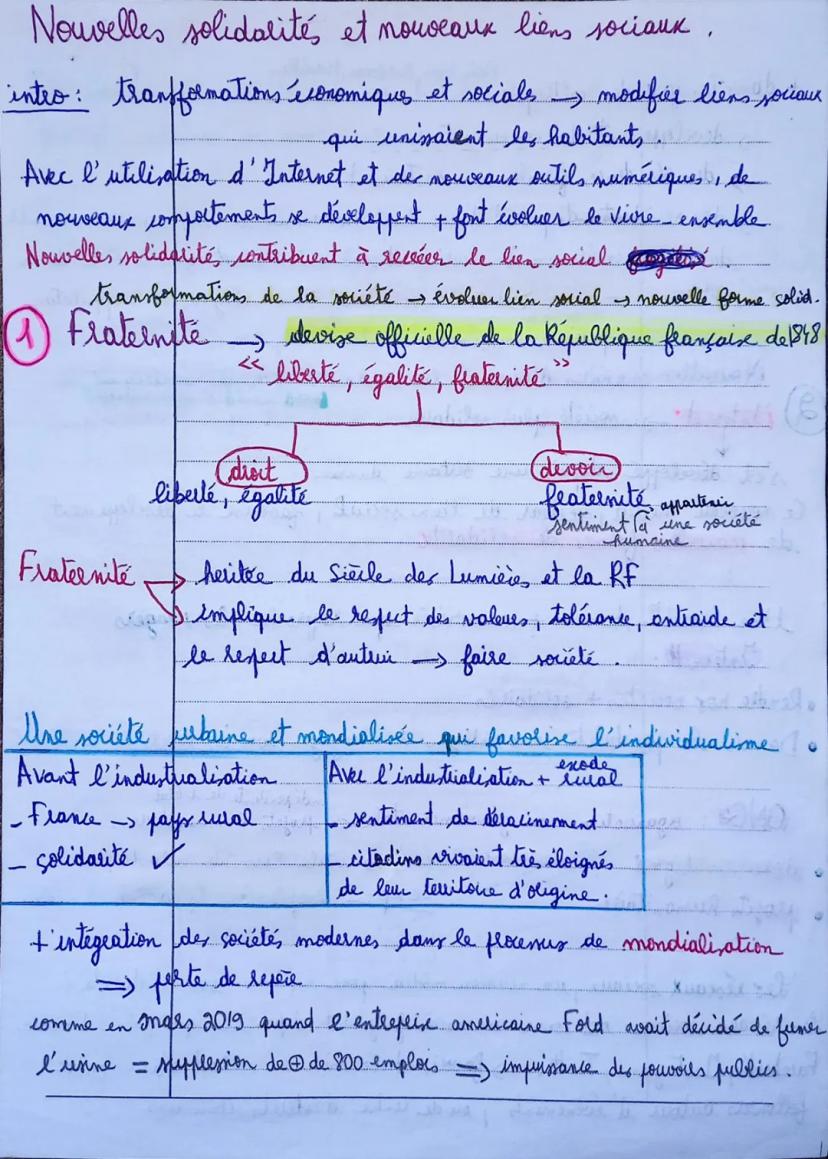 Nouvelles solidarités et nouveaux liens sociaux.
intro : transformations économiques et sociales → modifier liens sociaux
qui unissaient les habitants,
Avec l'utilisation d'Internet et des nouveaux outils numériques, de
nouveaux comportements se développent + font évoluer le vivre-ensemble
Nouvelles solidarité, contribuent à recréer le lien social
transformations de la société → évoluer lien social → nouvelle forme solid.
1 Fraternité → devise officielle de la République française de 1848
« liberté, égalité, fraternité »
droit devoir
liberté, égalité fraternité appartenir
sentiment à une société
humaine
Fraternité → heritée du Siècle des Lumières et la RF
→ implique le respect des valeurs, tolérance, entraide et
le respect d'autrui → faire société.
Une société urbaine et mondialisée qui favorise l'individualisme.
Avant l'industrialisation Avec l'industrialisation + exode rural
- France → pays rural - sentiment de déracinement
- solidarité ✓ - citadins vivaient très éloignés
de leur territoire d'origine.
+ intégration des sociétés modernes dans le processus de mondialisation
⇒ perte de repère
comme en mars 2019 quand l'entreprise americaine Ford avait décidé de fermer
l'usine = suppression de ⊕ de 800 emplois ⇒ impuissance des pouvoirs publics.